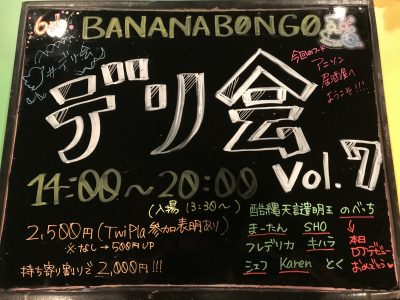 6/11 BANANABONGO
#デリ会
今回のフード
アニソン
居酒屋へ
ようこそ!!!
デリ会
vol.7
14:00〜20:00
(入場 13:30〜)
2,500円(TwiPla参加表明あり)
※なし→500円UP
持ち寄り割りで2,000円!!!
酷縄天誅遺明王 のべっち
まーたん SHO
フレデリカ キハラ
シェフ Karen とく
本日
DJデビュー
おめでとう